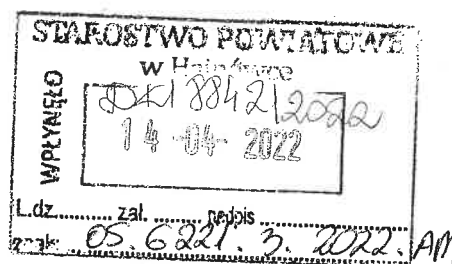 STAROSTWO POWIATOWE
w Hajnówce
WPŁYNĘŁO
8842/2022
14 -04- 2022
L.dz. ......... zał. ......... podpis .........
znak: OS. 6221. 3. 2022. AM